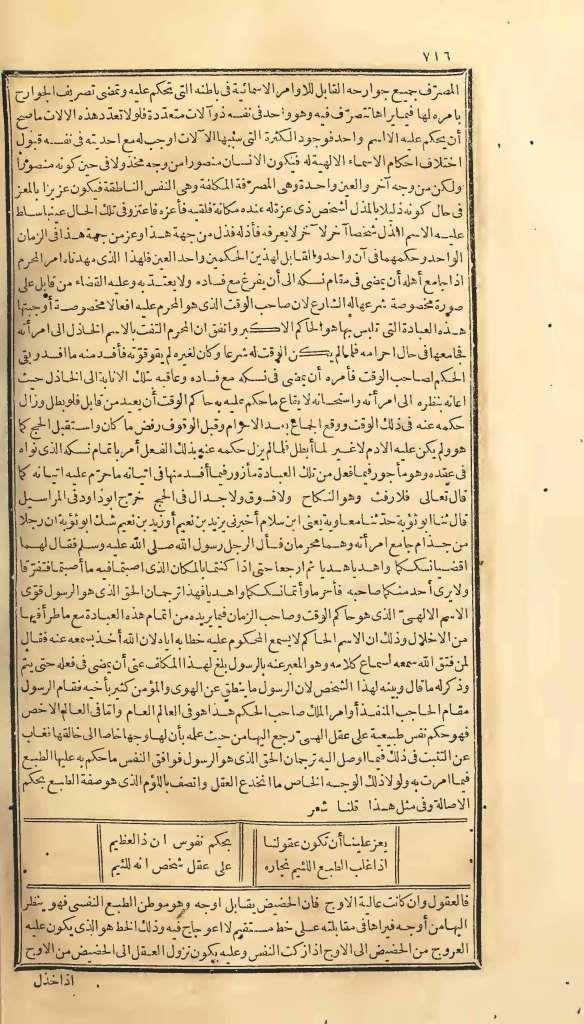 ٧١٦
المصرّف جميع جوارحه القابل للاوامر الاسمائية فى باطنه التى تحكم عليه وتمضى تصريف الجوارح
بامره لها فيما يراها تتصرّف فيه وهو واحد فى نفسه ذو آلات متعدّدة فلولا تعدّد هذه الالات ما صح
أن يحكم عليه الا اسم واحد فوجود الكثرة التى سببها الآلات اوجب له مع احديته فى نفسه قبول
اختلاف احكام الاسماء الالهية له فيكون الانسان منصورا من وجه مخذولا فى حين كونه منصورا
ولكن من وجه آخر والعين واحدة وهى المصرّفة المكلفة وهى النفس الناطقة فيكون عزيزا بالمعز
فى حال كونه ذليلا بالمذل لشخص ذى عزة له عنده مكانة فلقيه فأعزه فاعتز وفى تلك الحال عينها سلط
عليه الاسم المذل شخصا آخر لا يعرفه فأذله فذل من جهة هذا وعز من جهة هذا فى الزمان
الواحد وحكمهما فى آن واحد والقابل لهذين الحكمين واحد العين فلهذا الذى مهدناه امر المحرم
اذا جامع أهله أن يمضى فى مقام نسكه الى أن يفرغ مع فساده ولا يعتدّ به وعليه القضاء من قابل على
صورة مخصوصة شرعها له الشارع لان صاحب الوقت الذى هو المحرم عليه افعالا مخصوصة أوجبتها
هذه العبادة التى تلبس بها هو الحاكم الاكبر واتفق ان المحرم التفت بالاسم الخاذل الى امرأته
فجامعها فى حال احرامه فلما لم يكن الوقت له شرعا وكان لغيره لم يقو قوته فأفسد منه ما افسد وبقى
الحكم لصاحب الوقت فأمره أن يمضى فى نسكه مع فساده وعاقبه بتلك الانابة الى الخاذل حيث
اعانه بنظره الى امرأته واستحسانه لايقاع ما حكم عليه به حاكم الوقت أن يعيد من قابل فلو بطل وزال
حكمه عنه فى ذلك الوقت ووقع الجماع بعد الاحرام وقبل الوقوف رفض ما كان واستقبل الحج كما
هو ولم يكن عليه الا دم لا غير لما أبطل فلما لم يزل حكمه عنه بذلك الفعل أمر باتمام نسكه الذى نواه
فى عقده وهو مأجور فيما فعل من تلك العبادة مأزور فيما أفسد منها فى اتيانه ما حرّم عليه اتيانه كما
قال تعالى فلا رفث وهو النكاح ولا فسوق ولا جدال فى الحج خرّج ابوداود فى المراسيل
قال ثنا ابو توبة حدّثنا معاوية يعنى ابن سلام أخبرنى يزيد بن نعيم أو زيد بن نعيم شك ابو توبة ان رجلا
من جذام جامع امرأته وهما محرمان فسأل الرجل رسول الله صلى الله عليه وسلم فقال لهما
اقضيا نسككما واهديا هديا ثم ارجعا حتى اذا كنتما بالمكان الذى اصبتما فيه ما أصبتما فتفرّقا
ولا يرى أحد منكما صاحبه فأحرما وأتما نسككما واهديا فهذا ترجمان الحق الذى هو الرسول قوّى
الاسم الالهىّ الذى هو حاكم الوقت وصاحب الزمان فيما يريده من اتمام هذه العبادة مع ما طرأ فيها
من الاخلال وذلك ان الاسم الحاكم لا يسمع المحكوم عليه خطابه اياه لان الله أخذ بسمعه عنه فقال
لمن فتق الله سمعه أسماع كلامه وهو المعبر عنه بالرسول بلغ لهذا المكلف عنى أن يمضى فى فعله حتى يتم
وذكر له ما قال وبينه لهذا الشخص لان الرسول ما ينطق عن الهوى والمؤمن كثير بأخيه فقام الرسول
مقام الحاجب المنفذ أوامر الملك صاحب الحكم هذا هو فى العالم العام واتما فى العالم الاخص
فهو حكم نفس طبيعية على عقل الهىّ رجع اليها من حيث عمله بأن لها وجها خاصا الى خالقها فغاب
عن التثبت فى ذلك فيما اوصل اليه ترجمان الحق الذى هو الرسول فوافق النفس ما حكم به عليها الطبع
فيما امرت به ولولا ذلك الوجه الخاص ما انخدع العقل واتصف باللؤم الذى هو صفة الطبع بحكم
الاصالة وفى مثل هذا قلنا شعر
يعز علينا أن تكون عقولنا بحكم نفوس ان ذا لعظيم
اذا غلب الطبع اللئيم نجاره على عقل شخص انه للئيم
فالعقول وان كانت عالية الاوج فان الحضيض يقابل اوجه وهو موطن الطبع النفسى فهو ينظر
اليها من أوجه فيراها فى مقابلته على خط مستقيم لا اعوجاج فيه وذلك الخط هو الذى يكون عليه
العروج من الحضيض الى الاوج اذا زكت النفس وعليه يكون نزول العقل الى الحضيض من الاوج
اذا خذل